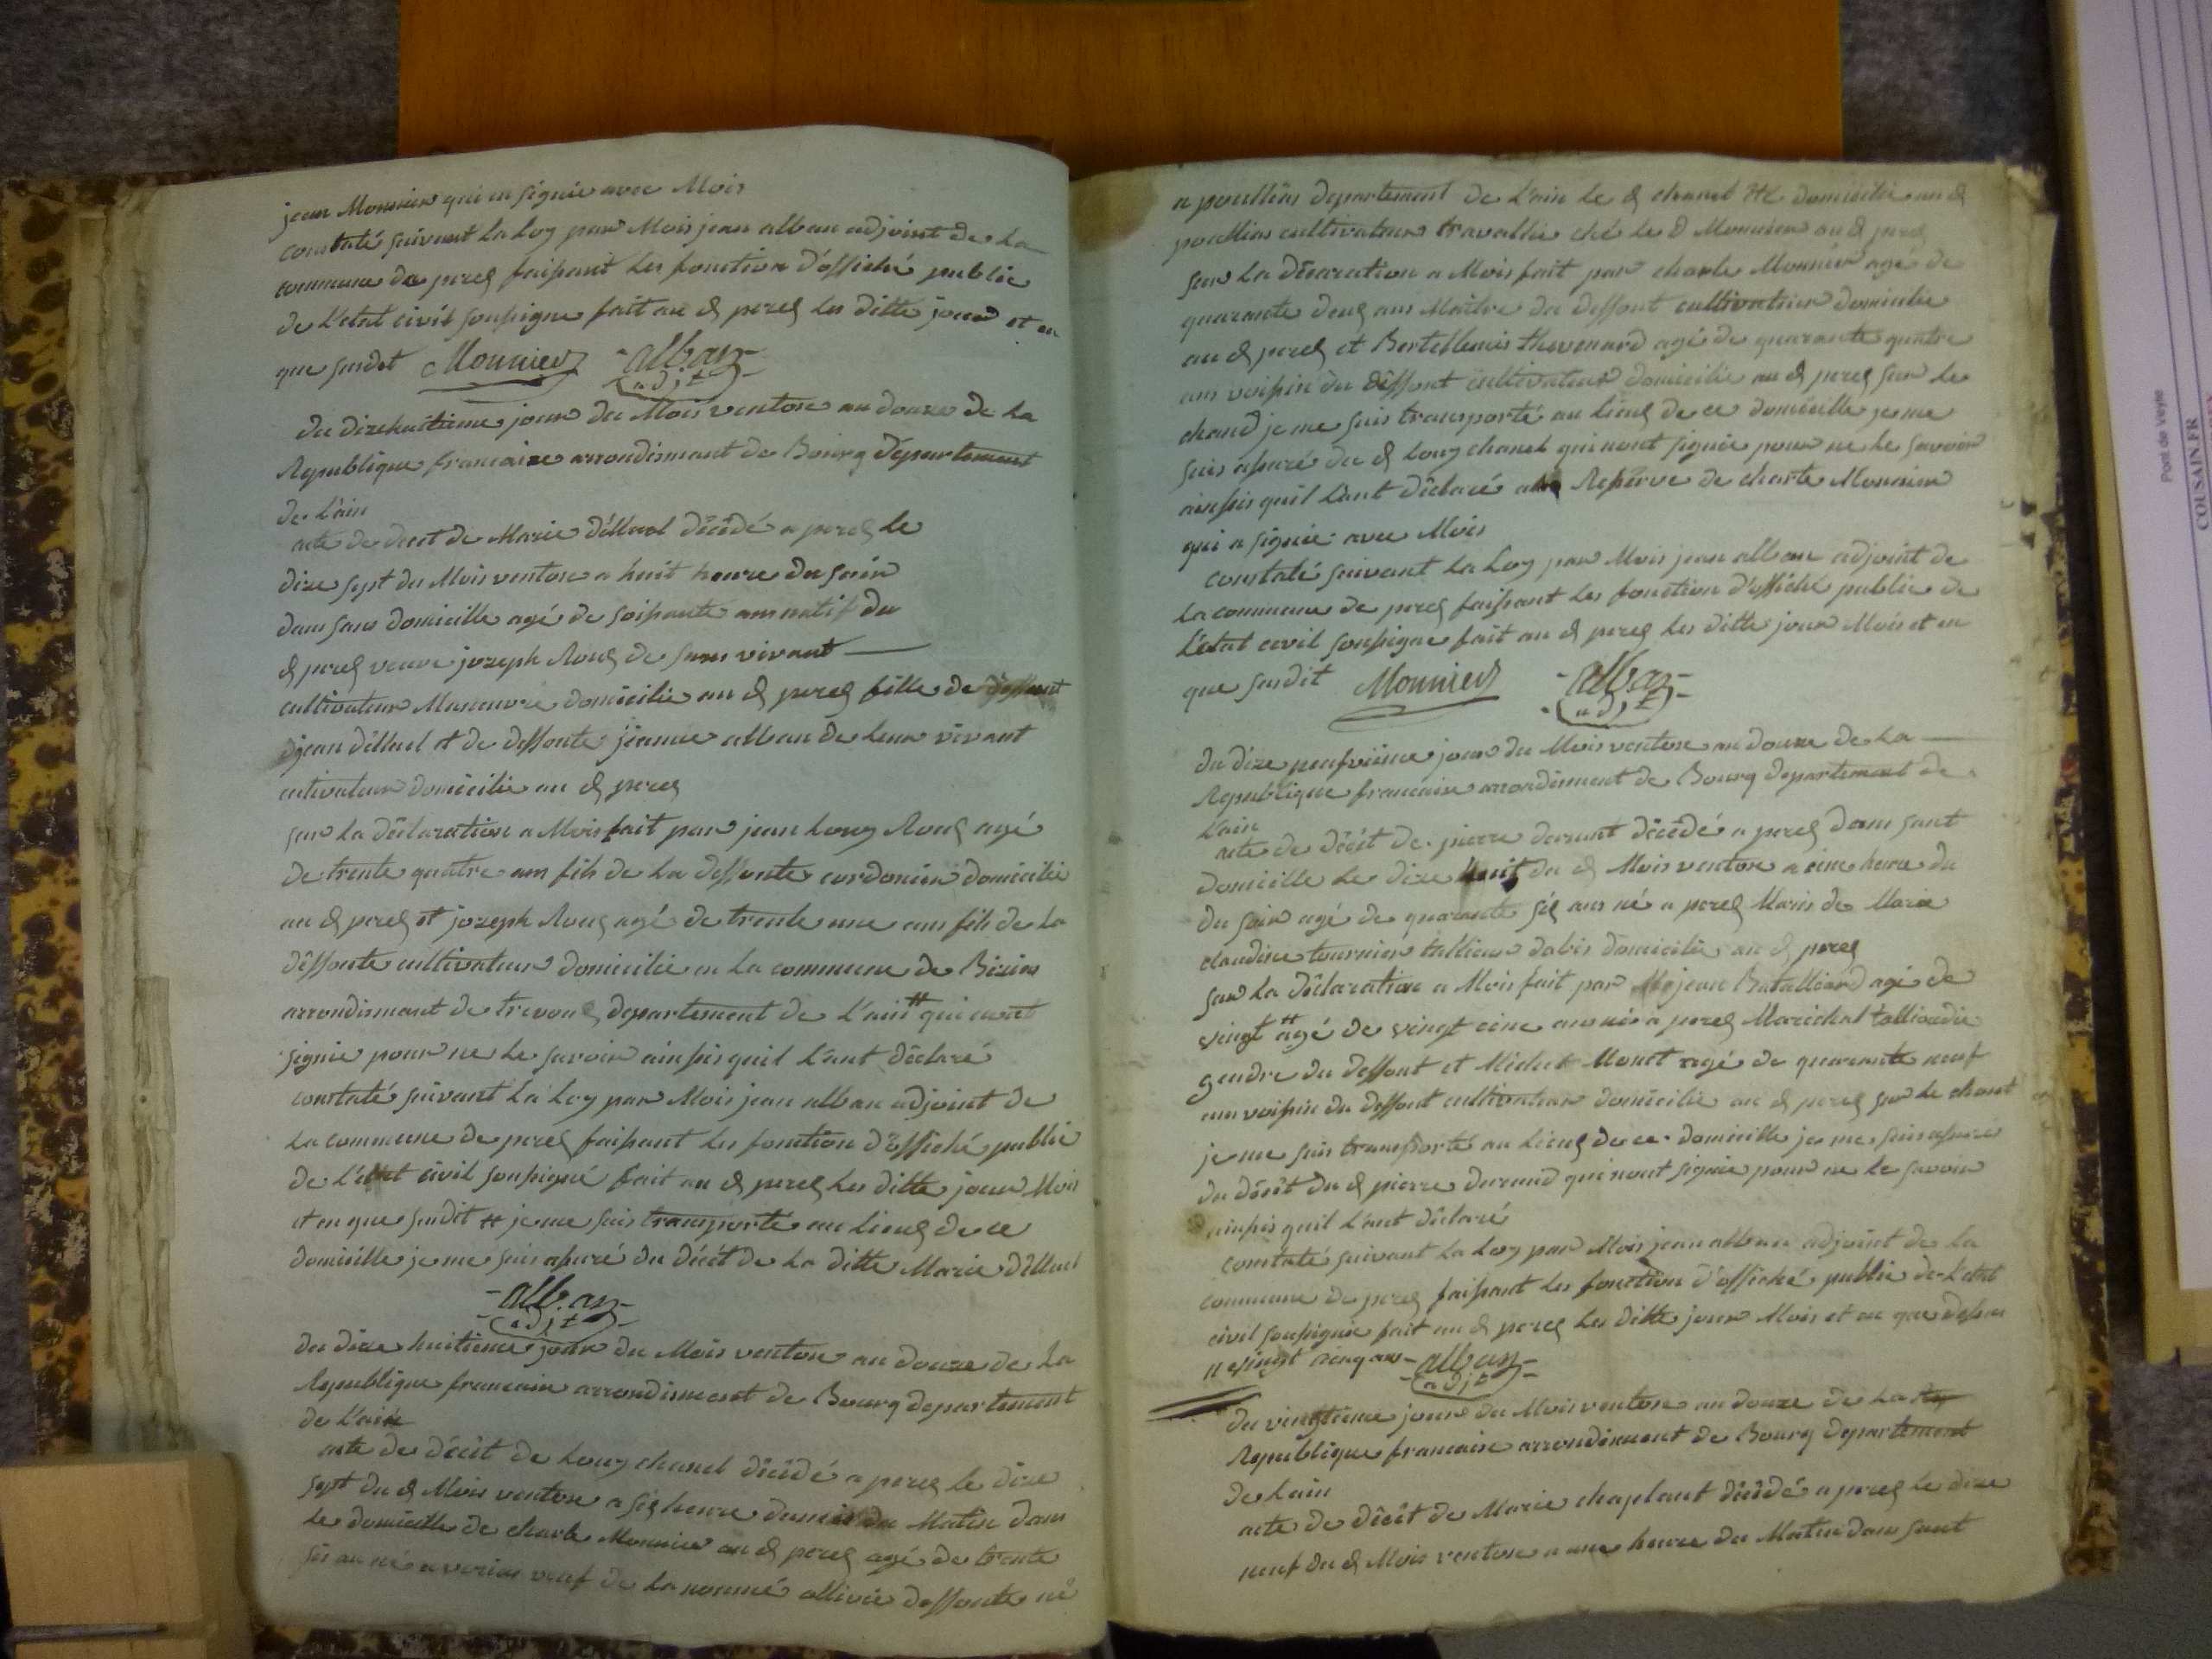 jean Monnier qui en signie avec Mois
constaté suivant la loy par Mois jean alban adjoint de la
commune de perex faissant les fonction d'offiché public
de L'etat civil soussigne fait au d perex les ditte jour et an
que susdit Monnier alban
adjt
du dizehuitieme jour du Mois ventose an douze de la
Republique francaise arrondismant de Bourg departement
de L'ain
acte de decet de Marie décédé a perex le
dize sept du Mois ventose a huit heure du soir
dans sans domicille agé de soissante ans natif du
d perex veuve jozeph Roux de sans vivant
cultivateur Maneuvre domicilie au d perex fille de deffunt
jean et de deffunte jeanne alban de leur vivant
cultivateur domicilie au d perex
sur la déclaration a Mois fait par jean Louy Roux agé
de trente quatre ans fils de la deffunte cordonier domicilie
au d perex et jozeph Roux agé de trente une ans fils de la
deffunte cultivateur domicilie en la commune de Biziat
arrondismant de trevoux departement de L'ain # qui
signie pour ne le savoir ainssis quil L'ant déclaré
constaté suivant la Loy par Mois jean alban adjoint de
La commune de perex faissant les fonction d'offiché public
de L'état civil soussigné fait au d perex les ditte jour Mois
et an que susdit # je me suis transporté au Lieux de ce
domicille je me suis assuré du décét de la ditte Marie
alban
adjt
du dize huitieme jour du Mois ventose an douze de La
Republique francaise arrondisment de Bourg departement
de L'ain
acte de décét de Louy chanel décédé a perex le dize
sept du d Mois ventose a six heure du Matin dans
le domicille de charle Monnier au d perex agé de trente
six an né a verias veuf de la nommé ollivie deffunte né
a pouillias departement de L'ain le d chanel domicilie au d
pouillias cultivateur travallie ché le d Monnier au d perex
sur la a Mois fait par charle Monnier agé de
quarante deux ans Maitre du deffunt cultivatier domicilie
au d perex et Bertellemis thevenard agé de quarante quatre
ans voissin du deffunt cultivateur domicilie au d perex sur le
chand je me suis transporté au Lieux de ce domicille je me
suis assuré du d Louy chanel qui nont signie pour ne le savoir
ainssis quil L'ant déclaré Reserve de charle Monnier
qui a signie avec Mois
constaté suivant la Loy par Mois jean alban adjoint de
La commune de perex faissant les fonction d'offiché public de
L'état civil soussigne fait au d perex les ditte jour Mois et an
que susdit Monnier alban
adjt
du dize neufvieme jour du Mois ventose an douze de La
Republique francaise arrondisment de Bourg departement de
L'ain
acte de décét de pierre durant décédé a perex dans sant
domicille le dize huit du d Mois ventose a cinc heure du
du soir agé de quarante six ans né a perex Maris de Marie
claudine tournier tallieur dabis domicilie au d perex
sur la déclaration a Mois fait par jean Batalliard agé de
vingt # agé de vingt cinc ans né a perex Marichal
gendre du deffunt et Michel Monet agé de quarante neuf
ans voissin du deffunt cultivatier domicilie au d perex sur le chant
je me suis transporté au Lieux de ce domicille je me suis assuré
du décét du d pierre durand qui nont signie pour ne le savoir
ainssis quil L'ant déclaré
constaté suivant la Loy par Mois jean alban adjoint de la
commune de perex faissant les fonction d'offiché public de L'etat
civil soussignie fait au d perex les ditte jour Mois et an que dessus
# vingt cinq ans alban
adjt
du vingtieme jour du Mois ventose an douze de La
Republique francaise arrondisment de Bourg departement
de Lain
acte de décét de Marie chaplant décédé a perex le dize
neuf du d Mois ventose a une heure du Matin dans sant
Pont de Veyle
COUSAIN.FR